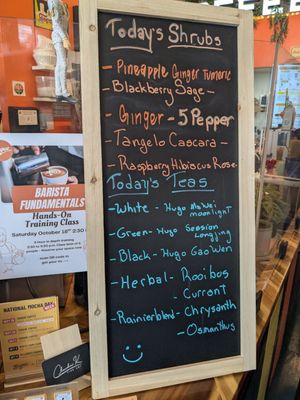 Today's Shrubs
- Pineapple Ginger Tumeric
- Blackberry Sage -
- Ginger - 5 Pepper
- Tangelo Cascara -
- Raspberry Hibiscus Rose -
Today's Teas
- White - Hugo
moonlight
- Green - Hugo Session
Longjing
- Black - Hugo GaoWen
- Herbal - Rooibos
- Currant
- Rainier blend - Chrysanth
- Osmanthus
BARISTA
FUNDAMENTALS
Hands-On
Training Class
Saturday October 18th 2:30
NATIONAL MOCHA DAY